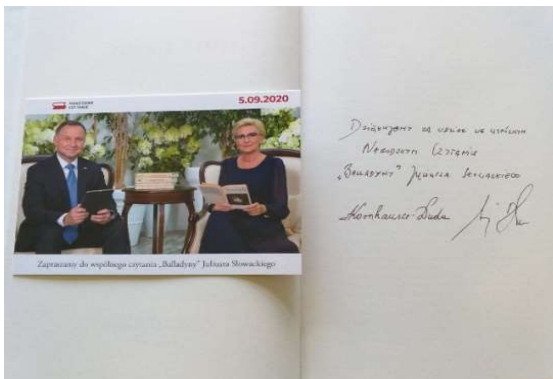 NARODOWE
CZYTANIE
5.09.2020
Zapraszamy do wspólnego czytania „Balladyny” Juliusza Słowackiego
Dziękujemy za udział we wspólnym
Narodowym Czytaniu
„Balladyny” Juliusza Słowackiego
Kornhauser-Duda